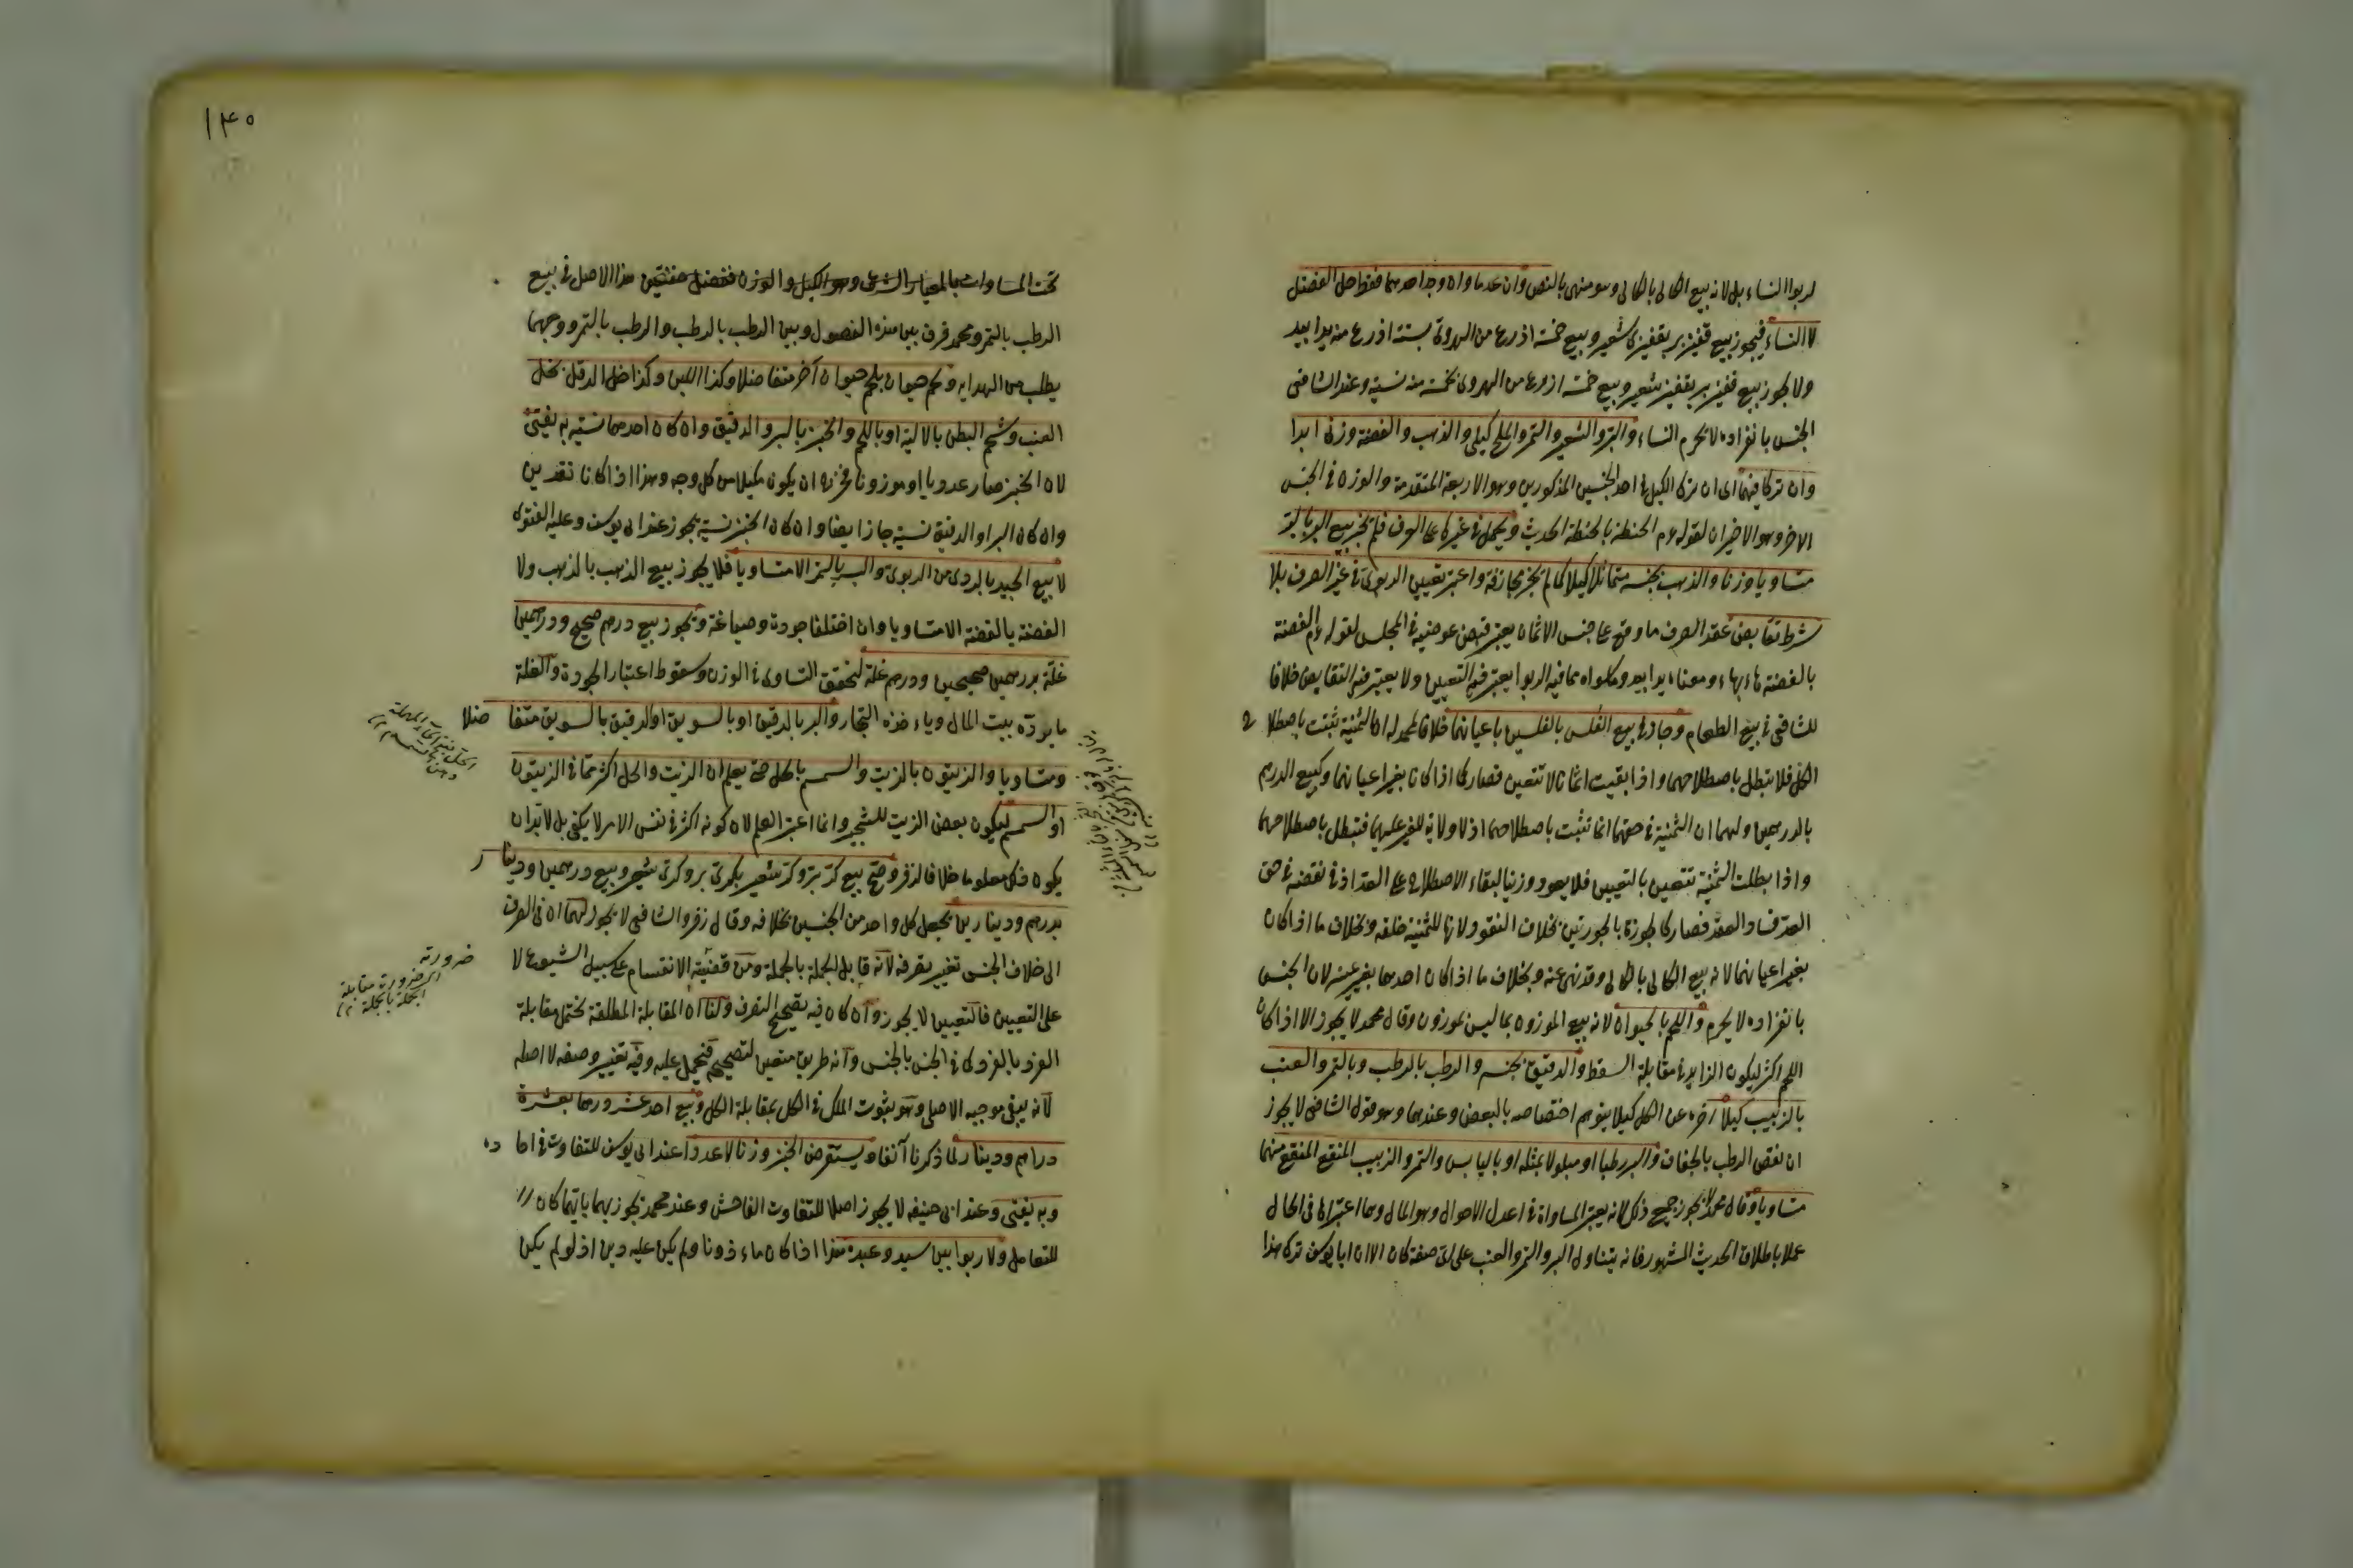 لربوا النساء بل لانه بيع الكالى بالكالى وهو منهى بالنص وان عدما وان وجد احدهما فقط حل الفضل
لا النساء فيجوز بيع قفيز بر بقفيزى شعير وبيع خمسة اذرع من الهروى بستة اذرع منه يدا بيد
ولا يجوز بيع قفيز بر بقفيز شعير وبيع خمسة اذرع من الهروى بخمسة منه نسية وعند الشافعى
الجنس بانفراده لا يحرم النساء والبر والشعير والتمر والملح كيلى والذهب والفضة وزنى ابدا
وان تركا فيهما اى ان ترك الكيل فى احد الجنسين المذكورين وهو الاربعة المتقدمة والوزن فى الجنس
الاخر وهو الاخيران لقوله عم الحنطة بالحنطة الحديث ويحمل فى غيرها على العرف فلم يجز بيع البر بالبر
متساويا وزنا والذهب بجنسه متماثلا كيلا كما لم يجز مجازفة واعتبر تعيين الربوى فى غير الصرف بلا
شرط تقابض عقد الصرف ما وقع على جنس الاثمان يعتبر قبض عوضيه فى المجلس لقوله عم الفضة
بالفضة هاء بهاء ومعناه يدا بيد وما سواه مما فيه الربوا يعتبر فيه التعيين ولا يعتبر فيه التقابض خلافا
للشافعى فى بيع الطعام وجاز بيع الفلس بالفلسين باعيانهما خلافا لمحمد له ان الثمنية تثبت باصطلا ح
الكل فلا تبطل باصطلاحهما واذا بقيت اثمانا لا تتعين فصار كما اذا كانا بغير اعيانهما وكبيع الدرهم
بالدرهمين ولهما ان الثمنية فى حقهما انما تثبت باصطلاحهما اذ لا ولاية للغير عليهما فتبطل باصطلاحهما
واذا بطلت الثمنية تتعين بالتعيين فلا يعود وزنيا لبقاء الاصطلاح على العد اذ فى نقضه فى حق
العد فساد العقد فصار كالجوزة بالجوزتين بخلاف النقود لانها للثمنية خلقة وبخلاف ما اذا كان
بغير اعيانهما لانه بيع الكالى بالكالى وقد نهى عنه وبخلاف ما اذا كان احدهما بغير عينه لان الجنس
بانفراده لا يحرم واللحم بالحيوان لانه بيع الموزون بما ليس بموزون وقال محمد لا يجوز الا اذا كان
اللحم اكثر ليكون الزايد فى مقابلة السقط والدقيق بجنسه والرطب بالرطب وبالتمر والعنب
بالزبيب كيلا اخره عن الكل كيلا يتوهم اختصاصه بالبعض وعندهما وهو قول الشافعى لا يجوز
ان نقص الرطب بالجفاف والبر رطبا او مبلولا بمثله او باليابس والتمر والزبيب المنقع بالمنقع منهما
متساويا وقال محمد لا يجوز جميع ذلك لانه يعتبر المساواة فى اعدل الاحوال وهو المال وهما اعتبراها فى الحال
عملا باطلاق الحديث المشهور فانه يتناول البر والتمر والعنب على اى صفة كان الا ان ابا يوسف ترك هذا
١٤٥
تحت المساوات بالمعيار الشرعى وهو الكيل والوزن هذا الاصل فى بيع
الرطب بالتمر ومحمد فرق بين هذه الفصول وبين الرطب بالرطب والرطب بالتمر ووجههما
يطلب من الهداية ولحم حيوان بلحم حيوان آخر متفاضلا وكذا اللبن وكذا خل الدقل بخل
العنب وشحم البطن بالالية او باللحم والخبز بالبر والدقيق وان كان احدهما نسية به يفتى
لان الخبز صار عدديا او موزونا فخرج ان يكون مكيلا من كل وجه وهذا اذا كانا نقدين
وان كان البر او الدقيق نسية جاز ايضا وان كان الخبز نسية يجوز عند ابى يوسف وعليه الفتوى
لا بيع الجيد بالردى من الربوى والبر بالبر الا متساويا فلا يجوز بيع الذهب بالذهب ولا
الفضة بالفضة الا متساويا وان اختلفا جودة وصياغة ويجوز بيع درهم صحيح ودرهمين
غلة بدرهمين صحيحين ودرهم غلة لتحقق التساوى فى الوزن وسقوط اعتبار الجودة والغلة
ما يرده بيت المال وياءخذه التجار والبر بالدقيق او بالسويق او الدقيق بالسويق متفا ضلا
ومتساويا والزيتون بالزيت والسمسم بالحل حتى يعلم ان الزيت والحل اكثر مما فى الزيتون
او السمسم ليكون بعض الزيت للثجير وانما اعتبر العلم لان كونه اكثر فى نفس الامر لا يكفى بل لا بد ان
يكون ذلك معلوما خلافا لزفر وصح بيع كر بر وكر شعير بكرى بر وكرى شعير وبيع درهمين ودينا ر
بدرهم ودينارين بجعل كل واحد من الجنسين بخلافه وقال زفر والشافعى لا يجوز لهما ان فى الصرف
الى خلاف الجنس تغيير تصرفه لانه قابل الجملة بالجملة ومن قضيته الانقسام على سبيل الشيوع لا
على التعيين فالتعيين لا يجوز وان كان فيه تصحيح التصرف ولنا ان المقابلة المطلقة تحتمل مقابلة
الفرد بالفرد كما فى الجنس بالجنس وانه طريق متعين لتصحيحه فيحمل عليه وفيه تغيير وصفه لا اصله
لانه يبقى موجبه الاصلى وهو ثبوت الملك فى الكل بمقابلة الكل وبيع احد عشر درهما بعشرة
دراهم ودينار لما ذكرنا آنفا ويستقرض الخبز وزنا لا عددا عند ابى يوسف للتفاوت فى احا ده
وبه يفتى وعند ابى حنيفه لا يجوز اصلا للتفاوت الفاحش وعند محمد يجوز بهما بايهما كان
للتعامل ولا ربوا بين سيد وعبده هذا اذا كان ماءذونا ولم يكن عليه دين اذ لو لم يكن
ضرورته
اى ضرورت مقابلة
الجملة بالجملة